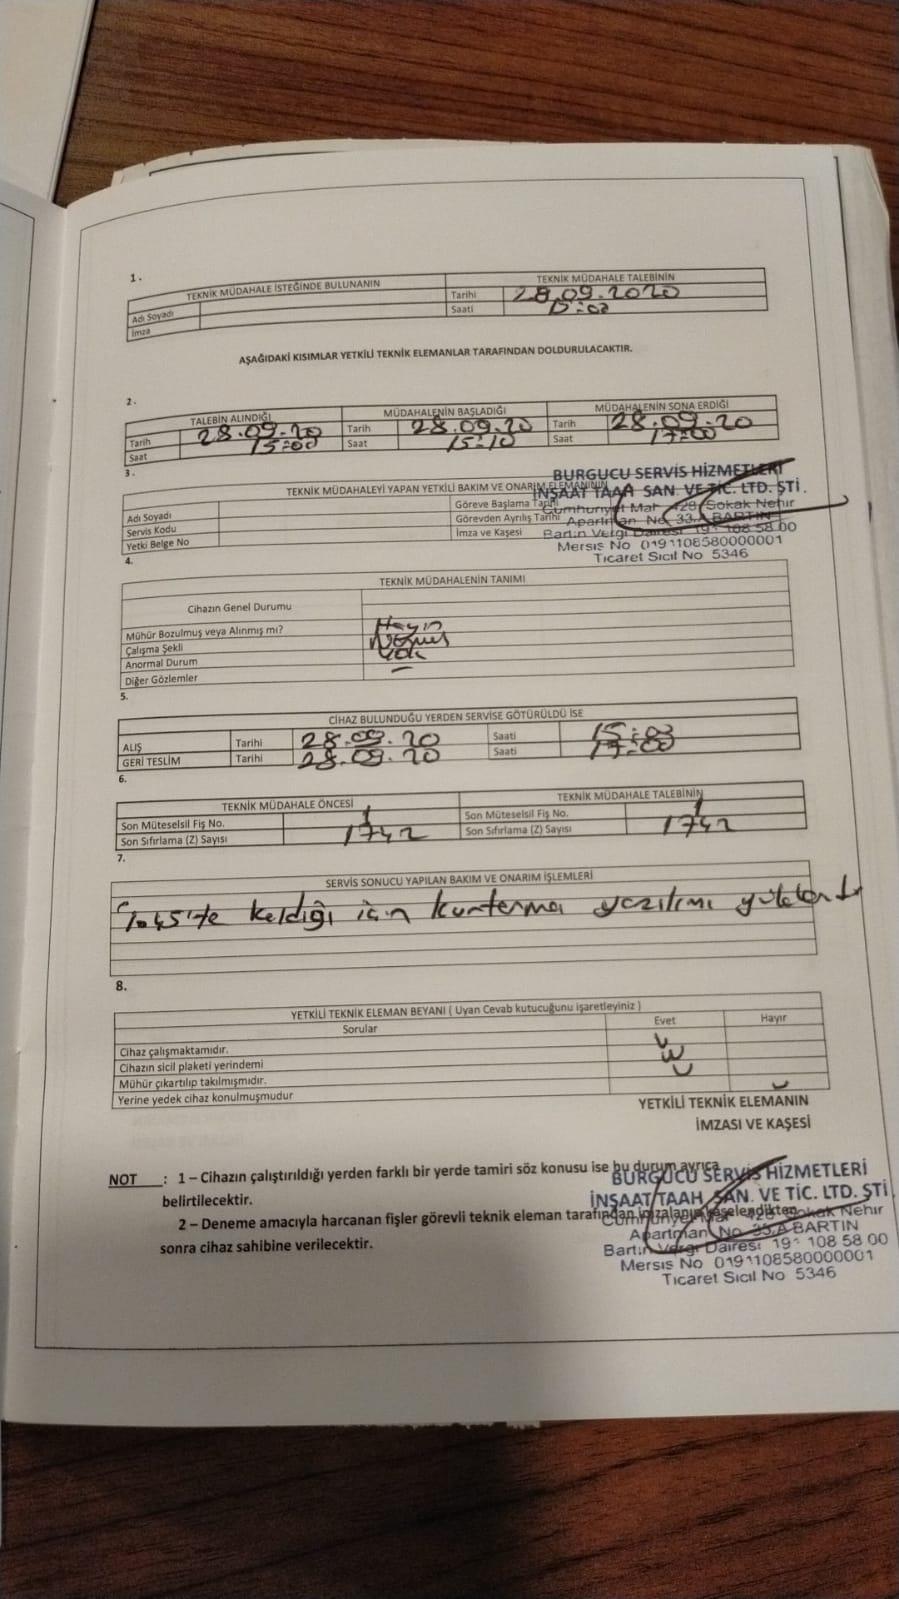 1.
TEKNİK MÜDAHALE İSTEĞİNDE BULUNANIN TEKNİK MÜDAHALE TALEBİNİN
Adı Soyadı Tarihi 28.09.2020
İmza Saati
AŞAĞIDAKİ KISIMLAR YETKİLİ TEKNİK ELEMANLAR TARAFINDAN DOLDURULACAKTIR.
2.
TALEBİN ALINDIĞI MÜDAHALENİN BAŞLADIĞI MÜDAHALENİN SONA ERDİĞİ
Tarih 28.09.20 Tarih 28.09.20 Tarih 28.09.20
Saat 15:00 Saat 15:10 Saat 17:00
3.
TEKNİK MÜDAHALEYİ YAPAN YETKİLİ BAKIM VE ONARIM ELEMANININ
Adı Soyadı Göreve Başlama Tarihi
Servis Kodu Görevden Ayrılış Tarihi
Yetki Belge No İmza ve Kaşesi
BURGUCU SERVİS HİZMETLERİ
İNŞAAT TAAH SAN. VE TİC. LTD. ŞTİ.
Cumhuriyet Mah 428 Sokak Nehir
Apartman No 33/A BARTIN
Bartın Vergi Dairesi 191 108 58 00
Mersis No 0191108580000001
Ticaret Sicil No 5346
4.
TEKNİK MÜDAHALENİN TANIMI
Cihazın Genel Durumu
Mühür Bozulmuş veya Alınmış mı? Hayır
Çalışma Şekli Normal
Anormal Durum Yok
Diğer Gözlemler –
5.
CİHAZ BULUNDUĞU YERDEN SERVİSE GÖTÜRÜLDÜ İSE
ALIŞ Tarihi 28.09.20 Saati 15:03
GERİ TESLİM Tarihi 28.09.20 Saati 17:00
6.
TEKNİK MÜDAHALE ÖNCESİ TEKNİK MÜDAHALE TALEBİNİN
Son Müteselsil Fiş No. 1 Son Müteselsil Fiş No. 1
Son Sıfırlama (Z) Sayısı 1742 Son Sıfırlama (Z) Sayısı 1742
7.
SERVİS SONUCU YAPILAN BAKIM VE ONARIM İŞLEMLERİ
%45'te keldiği için kurtarma yazılımı yüklendi
8.
YETKİLİ TEKNİK ELEMAN BEYANI ( Uyan Cevab kutucuğunu işaretleyiniz )
Sorular Evet Hayır
Cihaz çalışmaktamıdır.
Cihazın sicil plaketi yerindemi
Mühür çıkartılıp takılmışmıdır.
Yerine yedek cihaz konulmuşmudur
YETKİLİ TEKNİK ELEMANIN
İMZASI VE KAŞESİ
NOT : 1 – Cihazın çalıştırıldığı yerden farklı bir yerde tamiri söz konusu ise bu durum ayrıca
belirtilecektir.
2 – Deneme amacıyla harcanan fişler görevli teknik eleman tarafından imzalanıp kaşelendikten
sonra cihaz sahibine verilecektir.
BURGUCU SERVİS HİZMETLERİ
İNŞAAT TAAH SAN. VE TİC. LTD. ŞTİ
Cumhuriyet Mah 428 Sokak Nehir
Apartman No 33/A BARTIN
Bartın Vergi Dairesi 191 108 58 00
Mersis No 0191108580000001
Ticaret Sicil No 5346